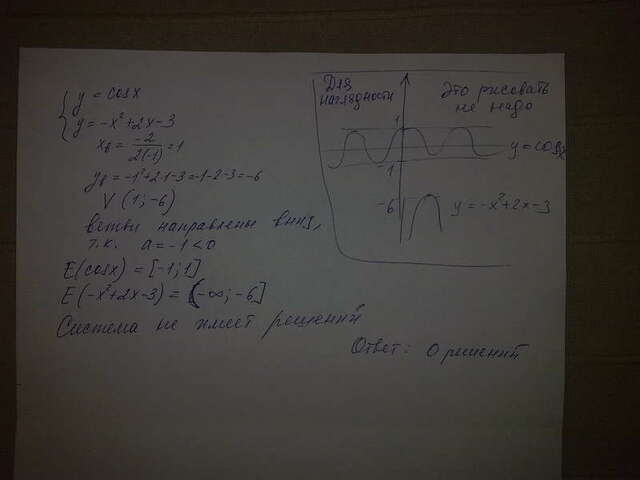 y = cosx
y = -x²+2x-3
xв = -2/2(-1) = 1
yв = -1²+2·1-3=-1-2-3=-6
V (1; -6)
ветви направлены вниз,
т.к. a = -1 < 0
E(cosx) = [-1; 1]
E(-x²+2x-3) = (-∞; -6]
Система не имеет решений
Ответ: 0 решений
Для наглядности
Это рисовать
не надо
1
y = cosx
1
-6
y = -x²+2x-3